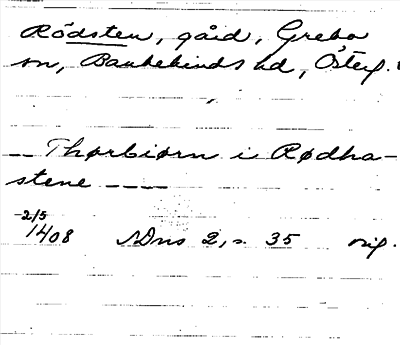 Rödsten, gård, Grebo
sn, Bankekinds hd, Österg.
— Thørbiørn i Rødha-
stene — — —
2/5
1408 SDns 2, s. 35 orig.